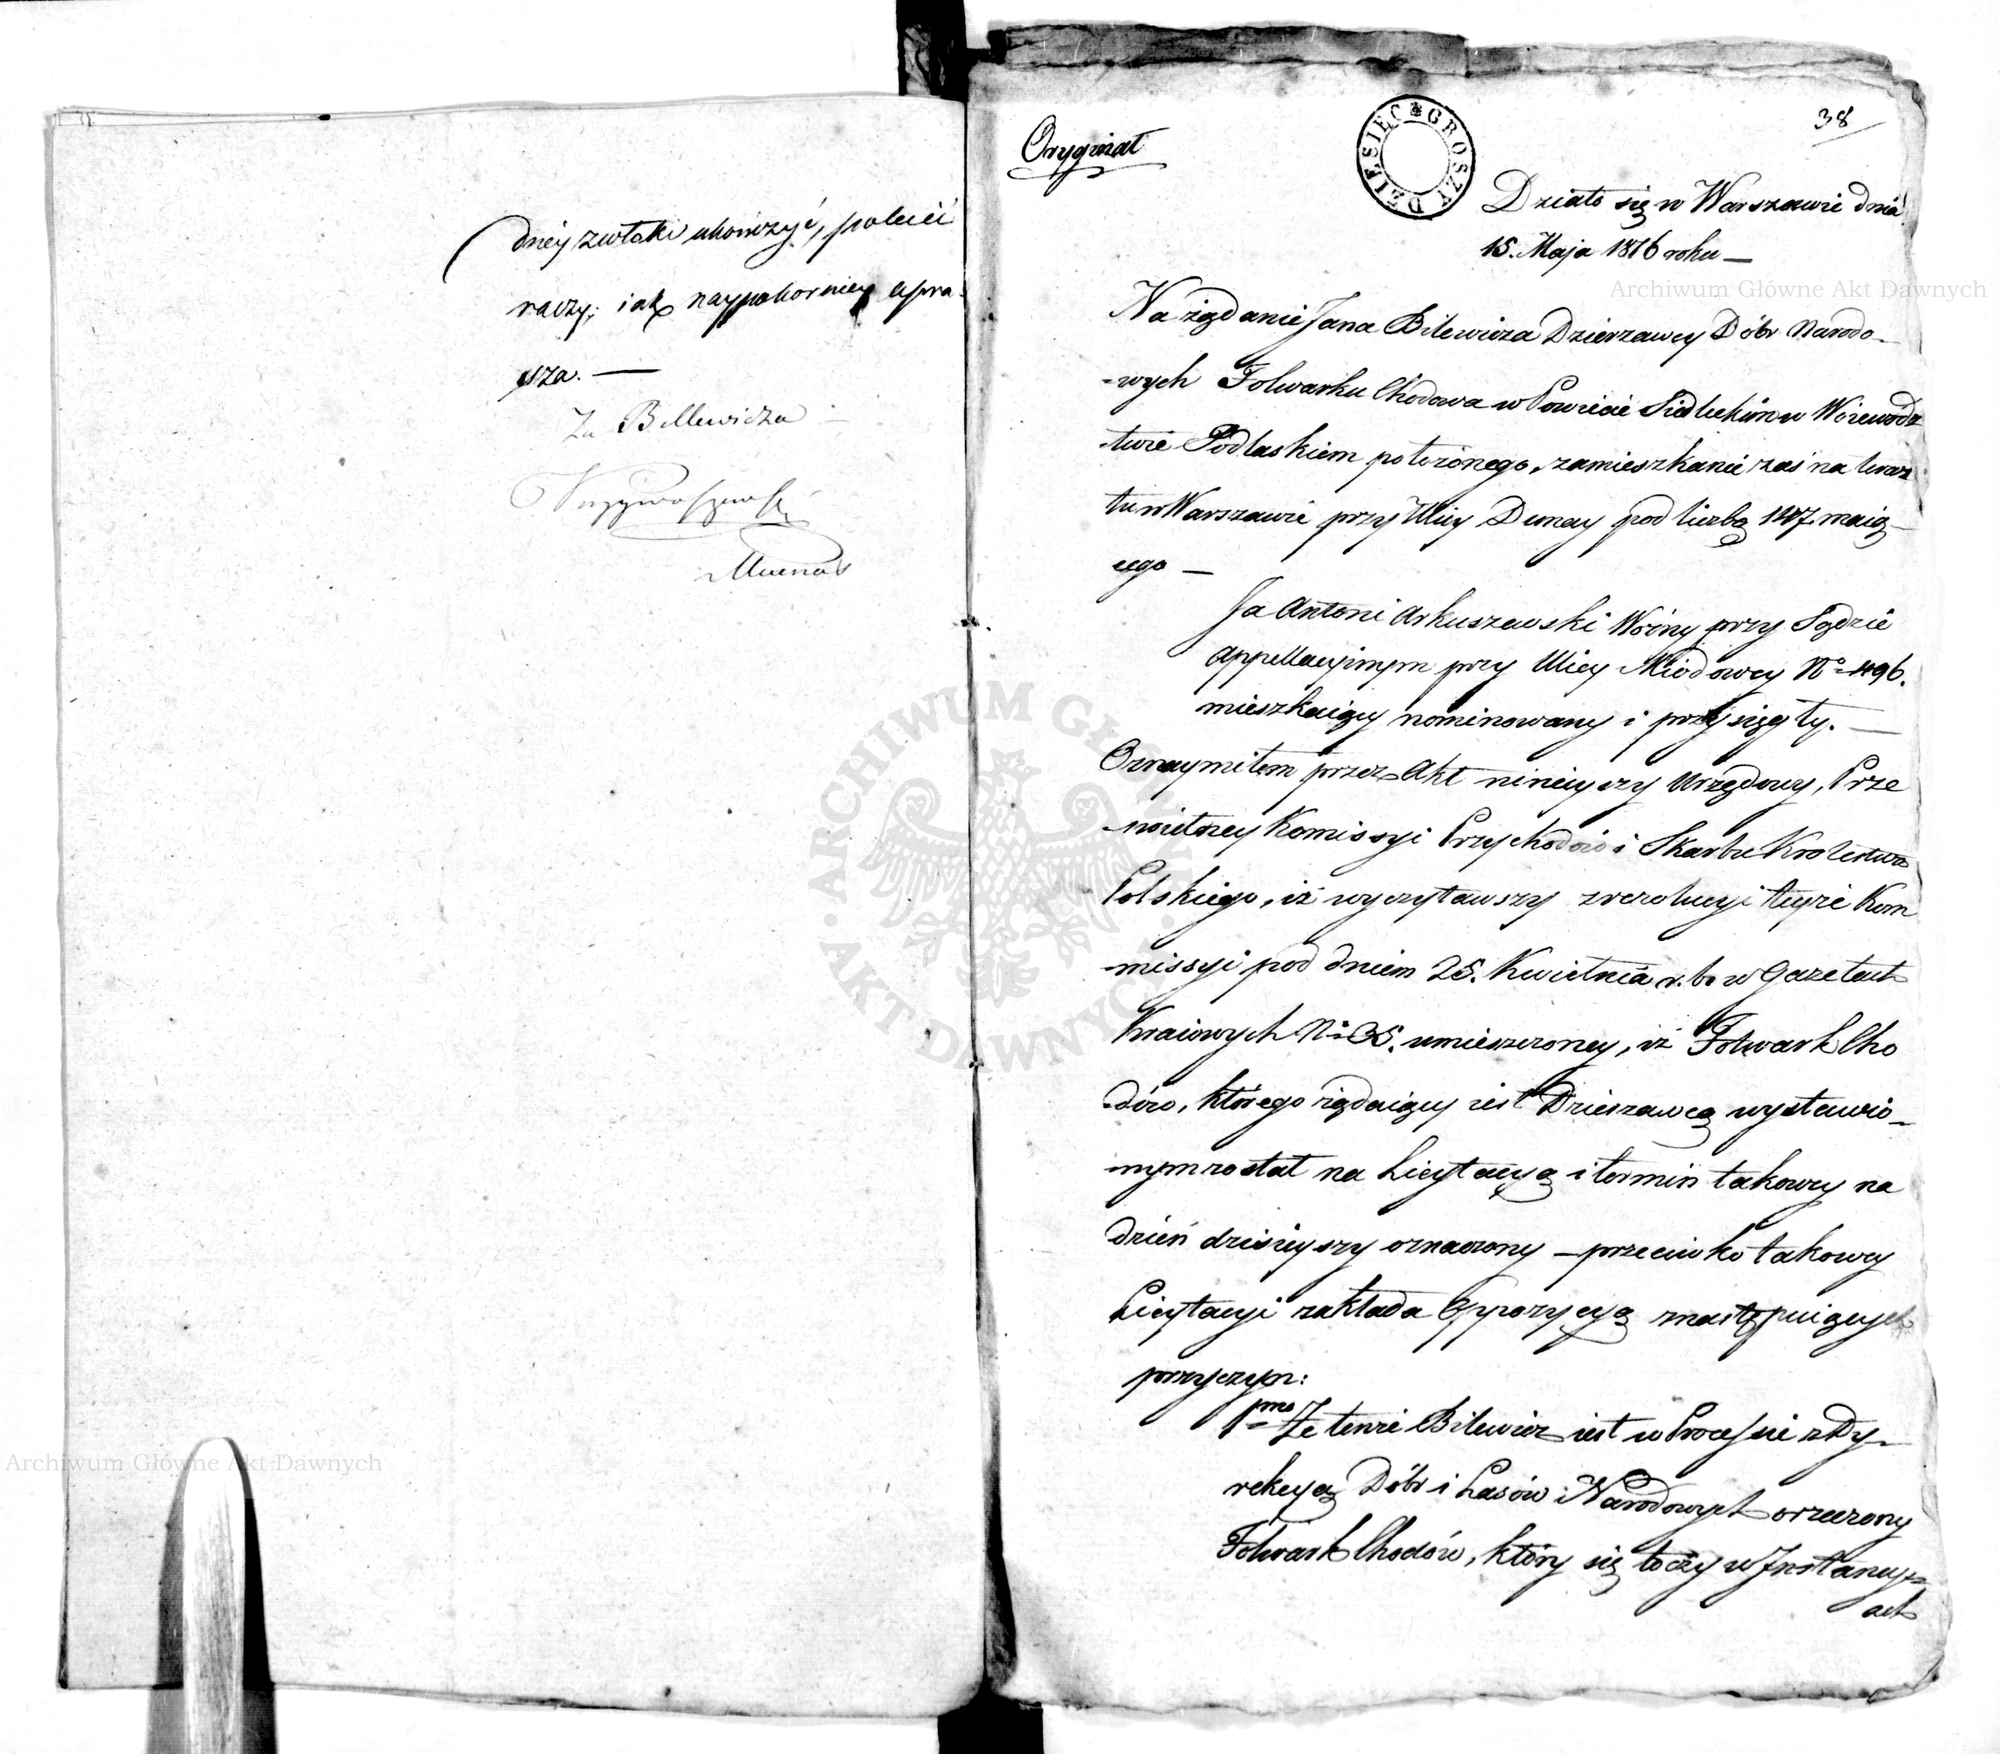 dney zwłoki ukończyć, polecić
raczy; iak naypokorniey upra-
sza. —
Za Billewicza
Oryginał
DZIESIĘC GROSZY
38
Działo się w Warszawie dnia
15. Maja 1816 roku —
Na żądanie Jana Bilewicza Dzierzawcy Dóbr Narodo-
-wych Folwarku Chodowa w Powiecie Siedleckim w Woiewódz
-twie Podlaskiem położonego, zamieszkanie zaś na teraz
tu w Warszawie przy Ulicy Dunay pod liczbą 147. maią-
cego —
Ja Antoni Arkuszewski Woźny przy Sądzie
Appellacyinym przy Ulicy Miodowey No 496.
mieszkaiący nominowany i przysięgły. —
Oznaymiłem przez Akt ninieyszy Urzędowy, Prze
-świetney Komissyi Przychodów i Skarbu Krolestwa
Polskiego, iż wyczytawszy z rezolucyi teyże Kom
-missyi pod dniem 25. Kwietnia r. b. w Gazetach
Kraiowych No 35. umieszczoney, iż Folwark Cho
-dów, którego żądaiący iest Dzierzawcą wystawio-
-nym został na Licytacyą i termin takowy na
dzień dzisieyszy oznaczony — przeciwko takowey
Licytacyi zakłada Oppozycyą z nastąpuiących
przyczyn:
1mo Że tenże Bilewicz iest w Processie z Dy-
rekcyą Dóbr i Lasów Narodowych o rzeczony
Folwark Chodów, który się toczy w Instancy-
ach
Archiwum Główne Akt Dawnych
ARCHIWUM GŁÓWNE · AKT DAWNYCH ·
Archiwum Główne Akt Dawnych